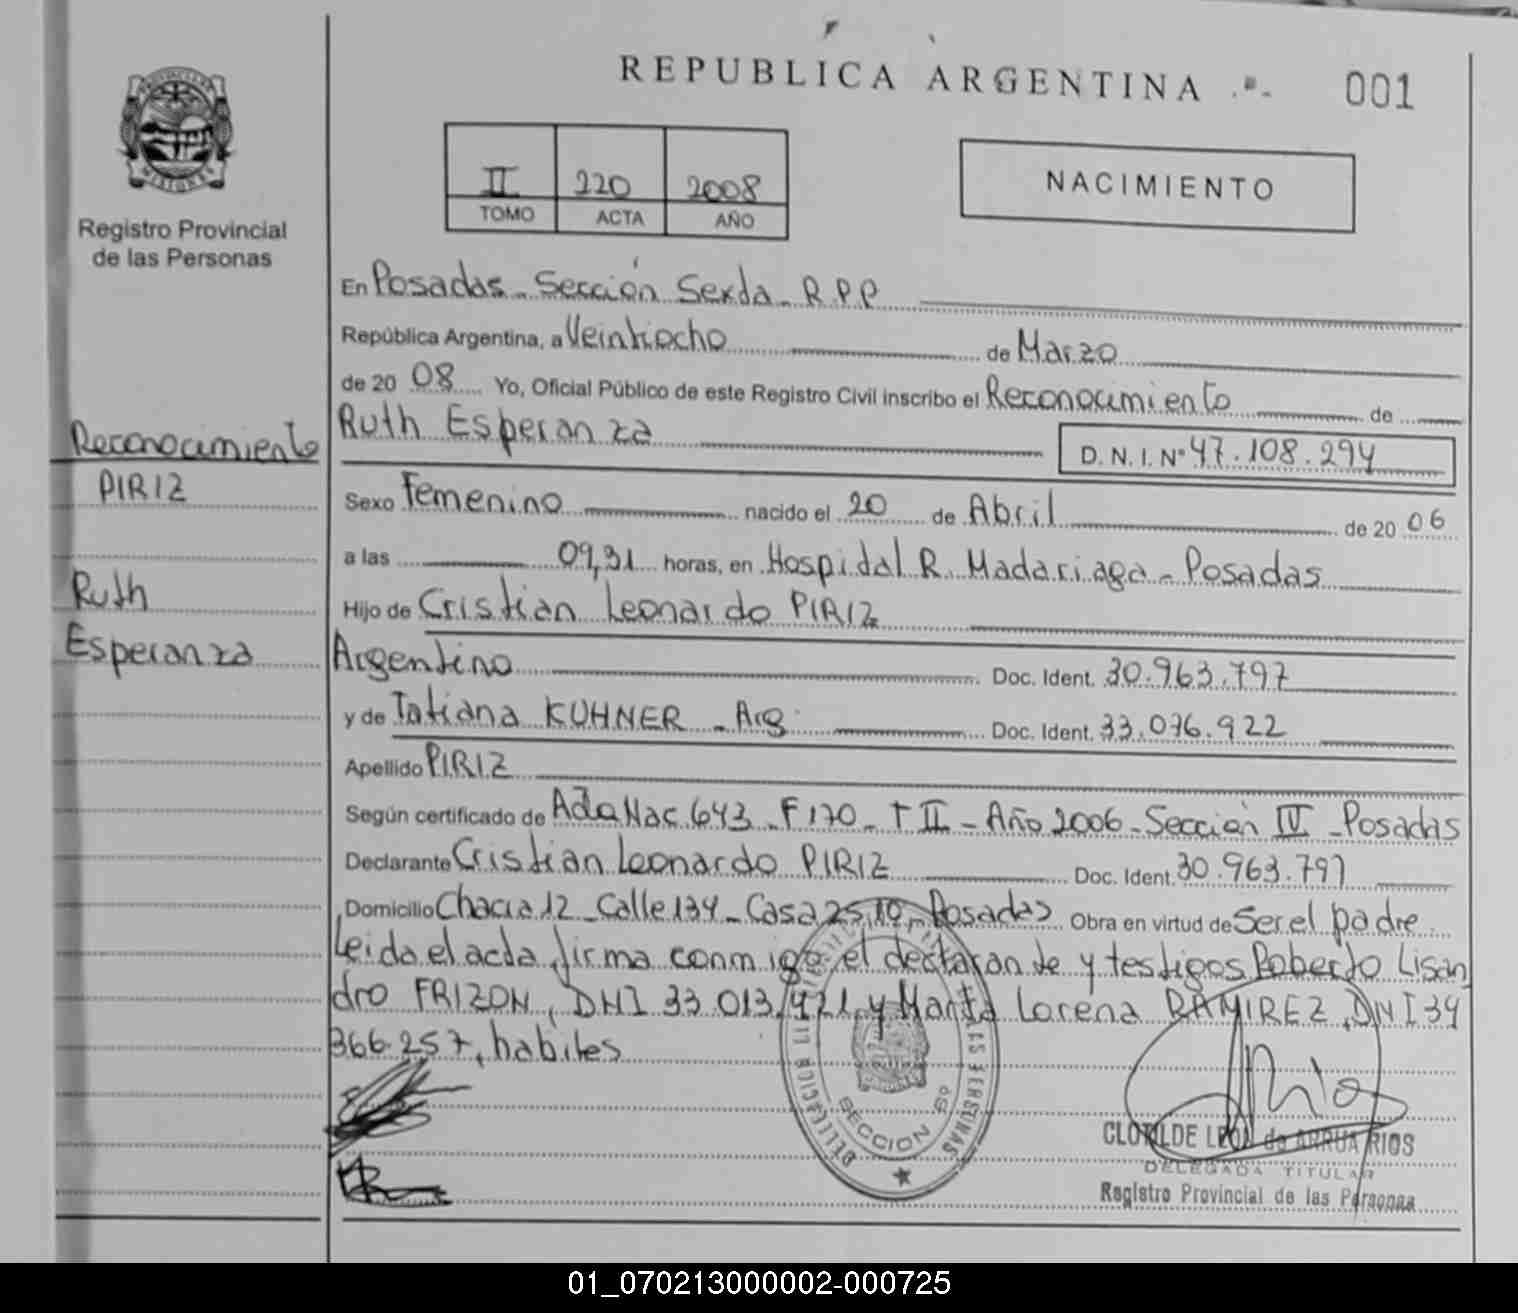 REPUBLICA ARGENTINA
001
PROVINCIA DE MISIONES
Registro Provincial
de las Personas
II 220 2008
TOMO ACTA AÑO
NACIMIENTO
En Posadas - Sección Sexta - R.P.P
República Argentina, a Veintiocho de Marzo
de 20 08 Yo, Oficial Público de este Registro Civil inscribo el Reconocimiento de
Ruth Esperanza
D. N. I. Nº 47.108.294
Reconocimiento
PIRIZ
Ruth
Esperanza
Sexo Femenino nacido el 20 de Abril de 20 06
a las 09,31 horas, en Hospital R. Madariaga - Posadas
Hijo de Cristian Leonardo PIRIZ
Argentino Doc. Ident. 30.963.797
y de Tatiana KUHNER - Arg. Doc. Ident. 33.076.922
Apellido PIRIZ
Según certificado de Acta Nac 643 - F 170 - T II - Año 2006 - Sección IV - Posadas
Declarante Cristian Leonardo PIRIZ Doc. Ident. 30.963.797
Domicilio Chacra 12 - Calle 134 - Casa 2510 - Posadas Obra en virtud de Ser el padre
Leida el acta, firma conmigo, el declarante y testigos Roberto Lisan
dro FRIZON, DNI 33 013.421, y Marta Lorena RAMIREZ, DNI 34
366.257, habiles
SECCION 6º
CLOTILDE LEON de ARRUA RIOS
DELEGADA TITULAR
Registro Provincial de las Personas
01_070213000002-000725